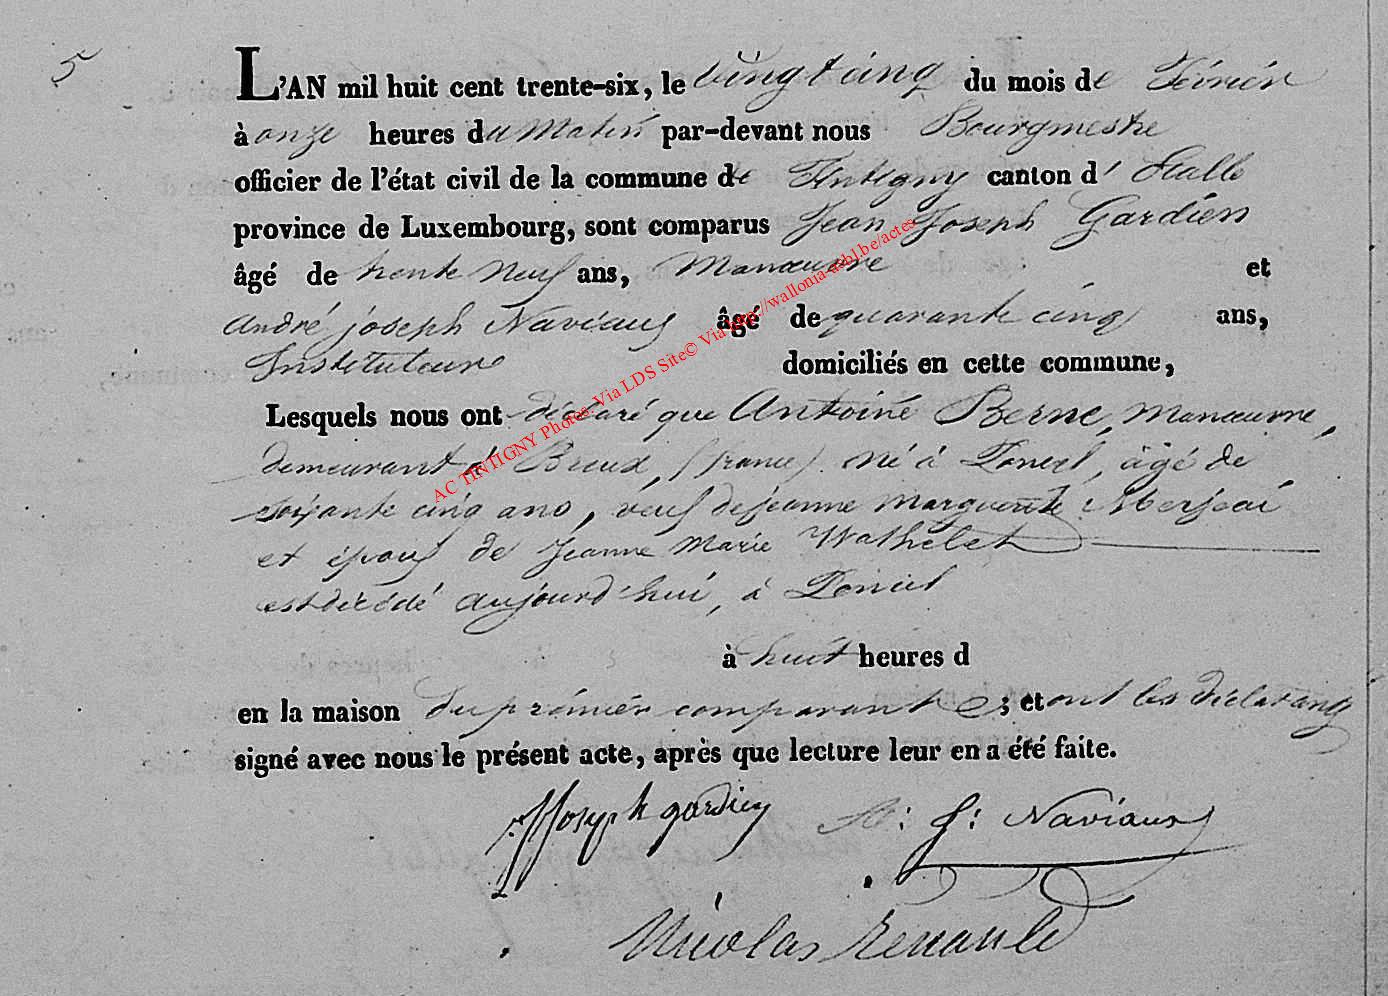 5
L'AN mil huit cent trente-six, le vingt cinq du mois de Février
à onze heures du Matin par-devant nous Bourgmestre
officier de l'état civil de la commune de Tintigny canton d' Etalle
province de Luxembourg, sont comparus Jean Joseph Gardien
âgé de trente Neuf ans, Manœuvre et
André joseph Naviaux âgé de quarante cinq ans,
Instituteur domiciliés en cette commune,
Lesquels nous ont déclaré que Antoine Berne, Manœuvre,
demeurant à Breux, (france) né à Poncel, âgé de
soixante cinq ans, veuf de jeanne Marguerite
et époux de Jeanne Marie Wathelet
est décédé aujourd'hui, à Poncel
à huit heures d
en la maison du prémiér comparant ; et ont les déclarans
signé avec nous le présent acte, après que lecture leur en a été faite.
JJoseph gardien A: J: Naviaux
Nicolas Renauld
AC TINTIGNY Photos. Via LDS Site© Via http://wallonia-asbl.be/actes